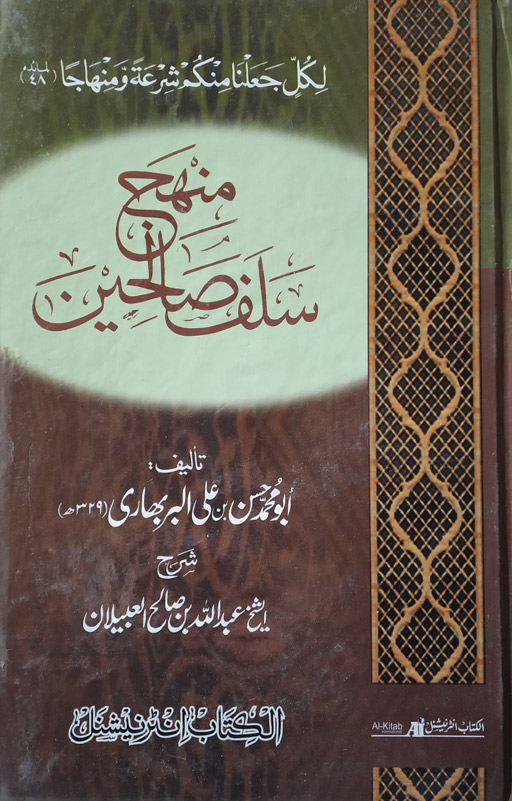 لِكُلٍّ جَعَلْنَا مِنْكُمْ شِرْعَةً وَّمِنْهَاجًا (المائدہ ٤٨)
منہج
سلف صالحین
تالیف:
أبو محمد حسن بن علی البربھاری (۳۲۹ھ)
شرح
الشیخ عبداللہ بن صالح العبیلان
الکتاب انٹرنیشنل
Al-Kitab
International
AI
الکتاب انٹرنیشنل